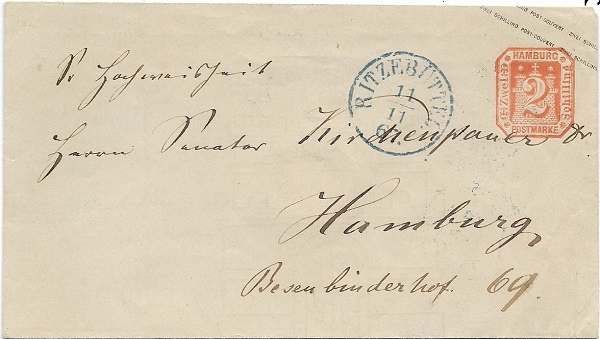 ZWEI SCHILLING POST-COUVERT ZWEI SCHILLING
HAMBURG
ZWEI
2
Schilling
POSTMARKE
RITZEBÜTTEL
11
11
Sr Hochweisheit
Herrn Senator Kirchenpauer Dr
Hamburg
Besenbinderhof. 69.